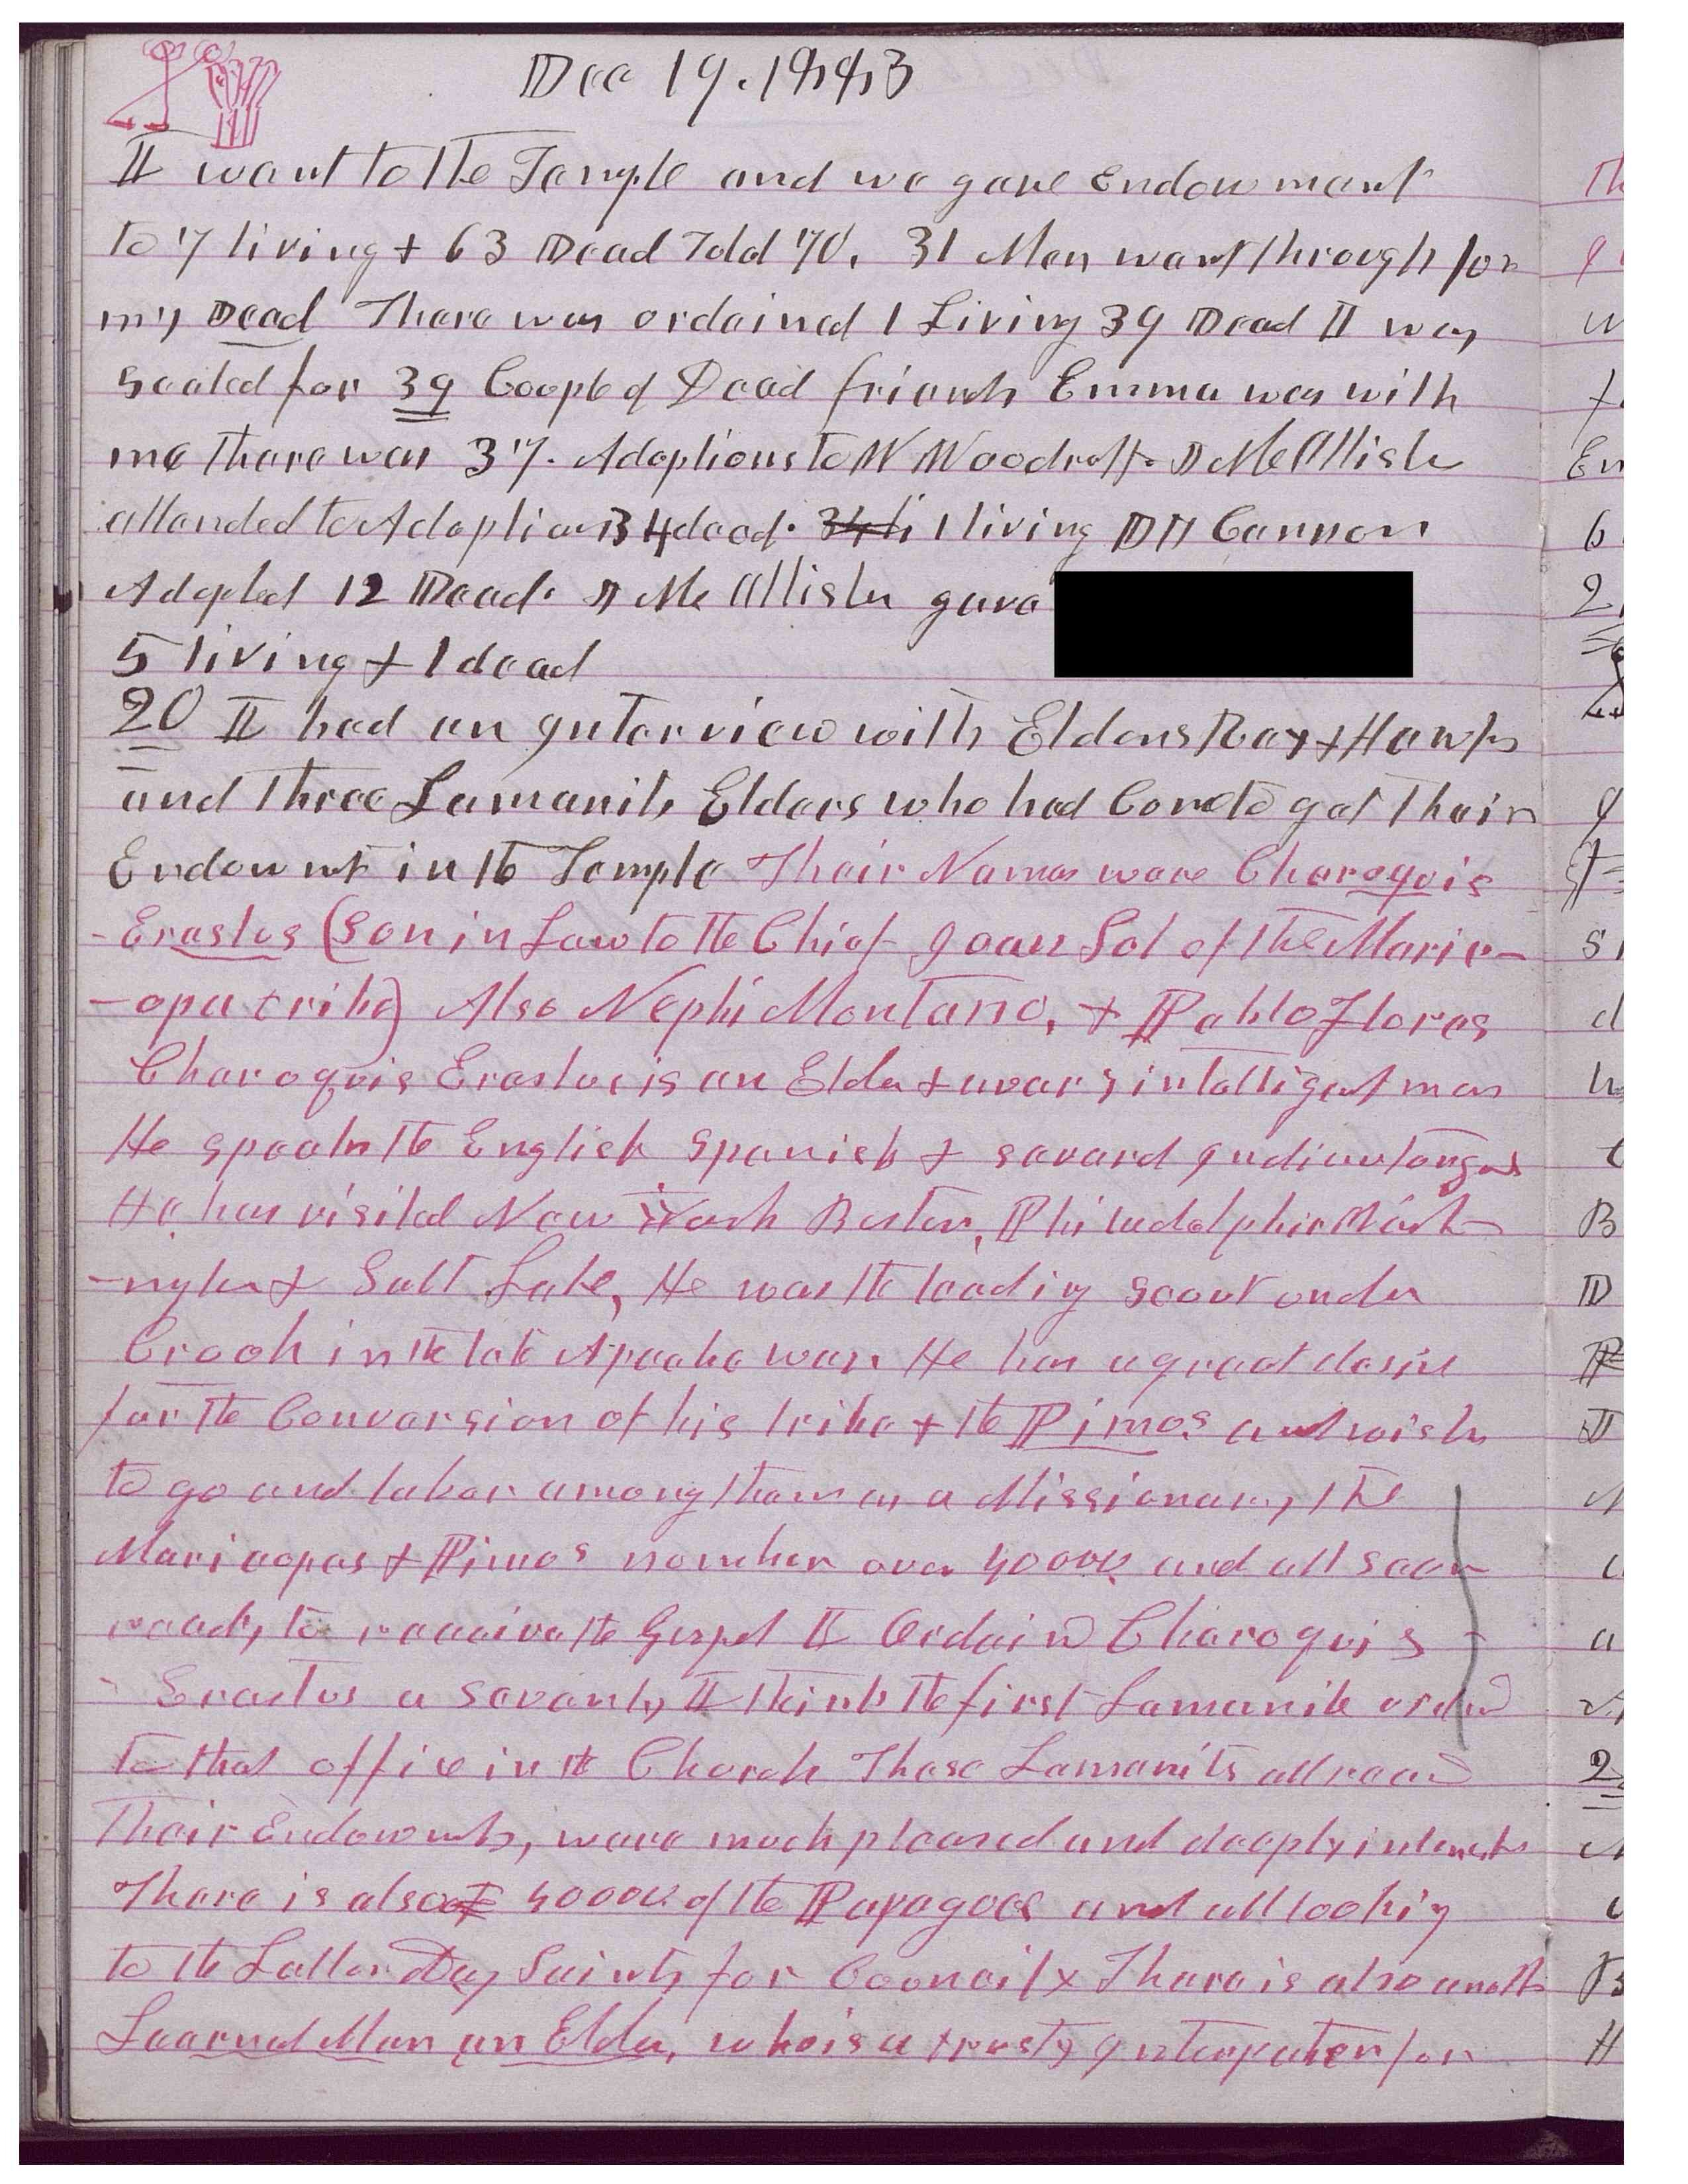 Dec 19, 1883
I went to the Temple and we gave Endowment
to 7 living & 63 Dead Total 70. 31 Men went through for
my Dead There was ordained 1 Living 39 Dead I was
sealed for 39 Couple of Dead friends Emma was with
me There was 37. Adoptions to W Woodruff. J McAllister
attended to Adoptions 34 dead. 34 li 1 living DH Cannon
Adopted 12 Dead. J McAllister gave
5 living & 1 dead
20 I had an Interview with Elders Ray & Hawks
and Three Lamanite Elders who had Come to get their
Endowmt in the Temple Their Names were Charoquis
-Erastus (Son in Law to the Chief Joan Sol of the Maric-
-opa tribe) Also Nephi Montano, & Pablo Flores
Charoquis Erastus is an Elder & a very intelligent man
He speaks the English Spanish & several Indian tongues
He has visited New York Boston, Philadelphia Wash-
-ngton & Salt Lake, He was the leading scout under
Crook in the late Apache war. He has a great desire
for the Conversion of his tribe & the Pimos and wish
to go and labor among them as a Missionary, The
Maricopas & Pimos number over 40000 and all seem
ready to receive the Gospel I Ordaind Charoquis
Erastus a seventy, I think the first Lamanite ordaind
to that office in the Church These Lamanits all recd
Their Endowmts, were much pleased and deeply interests
There is also of 40000 of the Papagoes and all looking
to the Latter Day Saints for Council x There is also another
Learned Man an Elder, who is a trusty Interpreter for